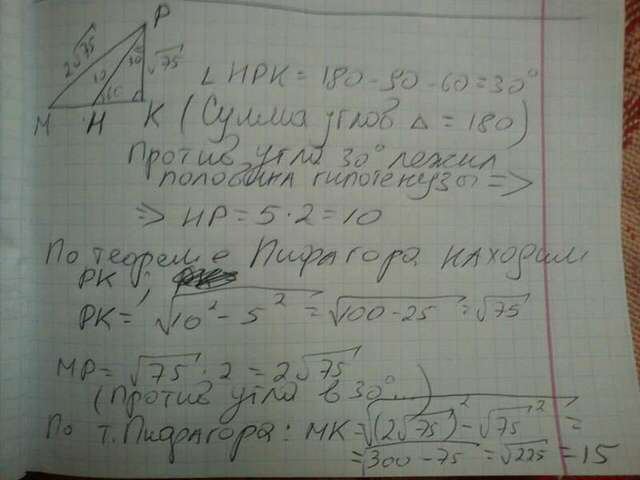 P
2√75
10
30
√75
60
M
H
K
∠ HPK = 180 - 90 - 60 = 30°
(Сумма углов Δ = 180)
Против угла 30° лежит
половина гипотенузы =>
=> HP = 5 · 2 = 10
По теореме Пифагора находим
PK:
PK = √10² - 5² = √100 - 25 = √75
MP = √75 · 2 = 2√75
(Против угла в 30° ...)
По т. Пифагора: MK = √(2√75)² - √75² =
= √300 - 75 = √225 = 15